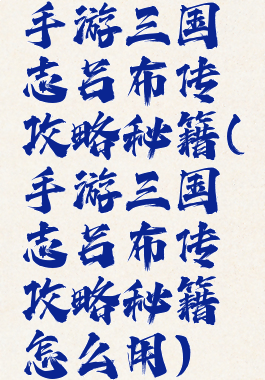 手游三国
志吕布传
攻略秘籍(
手游三国
志吕布传
攻略秘籍
怎么用)